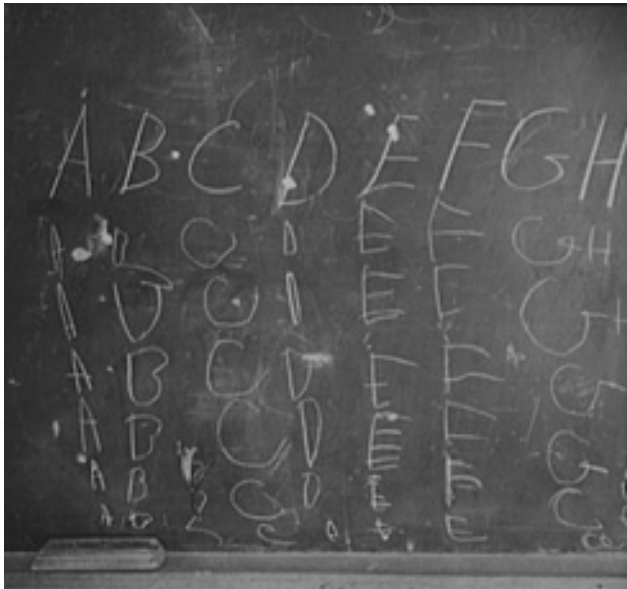 A B C D E F G H
A D C D E F G H
A D C D E F G
A B C D E F G
A B C D E F G
A B C D E F G